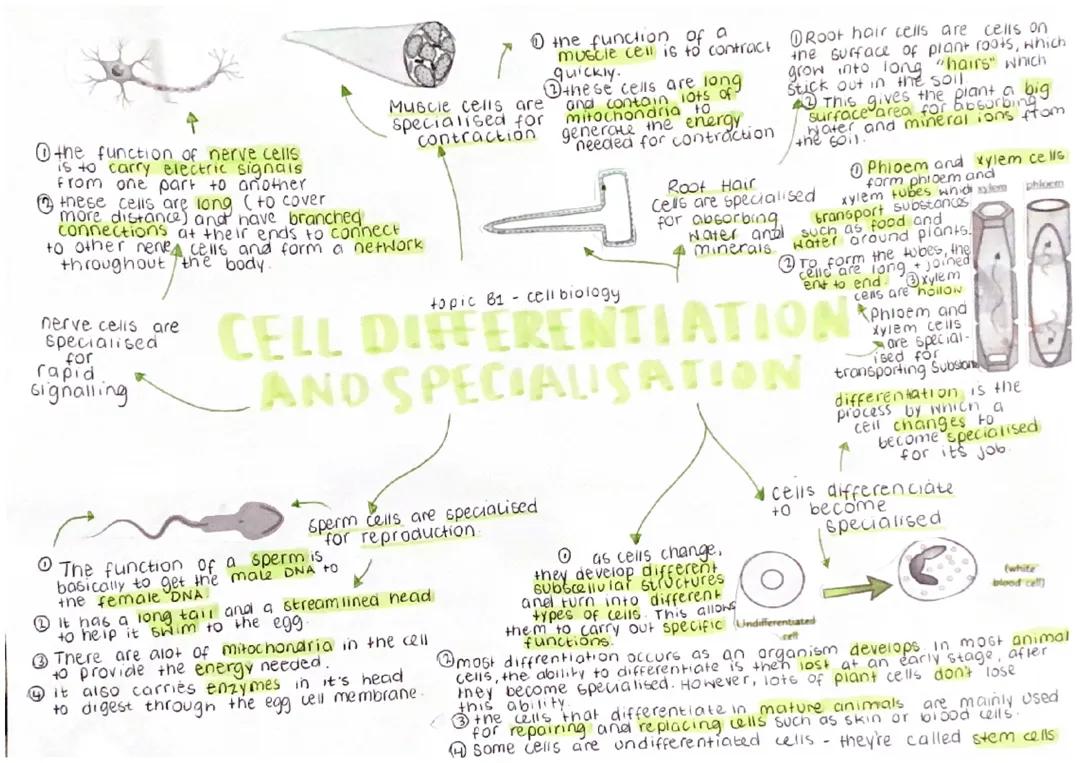 ① the function of a
muscle cell is to contract
quickly.
② these cells are long
and contain lots of
mitochondria to
generate the energy
needed for contraction
Muscle cells are
specialised for
contraction
① Root hair cells are cells on
the surface of plant roots, which
grow into long "hairs" which
stick out in the soil.
② This gives the plant a big
surface area for absorbing
water and mineral ions from
the soil.
① the function of nerve cells
is to carry electric signals
from one part to another
② these cells are long (to cover
more distance) and have branched
connections at their ends to connect
to other nerve cells and form a network
throughout the body.
Root Hair
cells are specialised
for absorbing
water and
minerals.
① Phloem and xylem cells
form phloem and
xylem tubes which
transport substances
such as food and
water around plants.
② To form the tubes, the
cells are long + joined
end to end. ③ Xylem
cells are hollow
xylem
phloem
Phloem and
xylem cells
are special-
ised for
transporting substan
nerve cells are
specialised
for
rapid
signalling
topic B1 - cell biology
CELL DIFFERENTIATION
AND SPECIALISATION
differentation is the
process by which a
cell changes to
become specialised
for its job.
cells differenciate
to become
specialised
sperm cells are specialised
for reproduction.
① The function of a sperm is
basically to get the male DNA to
the female DNA
② It has a long tail and a streamlined head
to help it swim to the egg.
③ There are alot of mitochondria in the cell
to provide the energy needed.
④ it also carries enzymes in it's head
to digest through the egg cell membrane.
① as cells change,
they develop different
subscellular structures
and turn into different
types of cells. This allows
them to carry out specific
functions.
Undifferentiated
cell
(white
blood cell)
② most diffrentiation occurs as an organism develops. In most animal
cells, the ability to differentiate is then lost at an early stage, after
they become specialised. However, lots of plant cells dont lose
this ability.
③ the cells that differentiate in mature animals are mainly used
for repairing and replacing cells such as skin or blood cells.
④ Some cells are undifferentiated cells - they're called stem cells